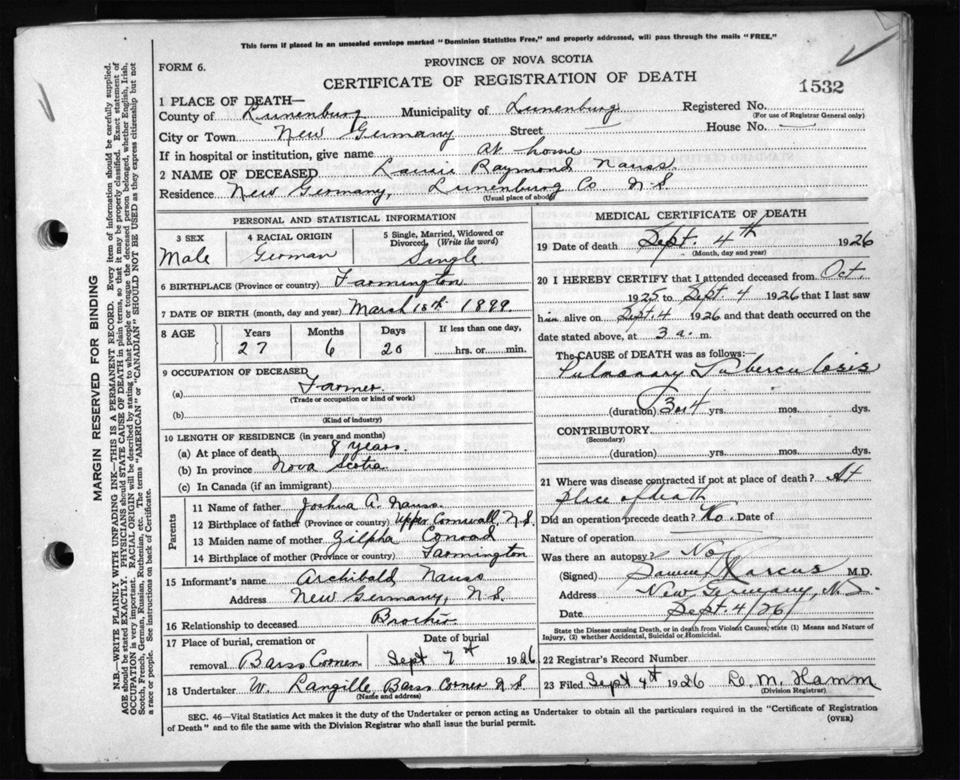 This form if placed in an unsealed envelope marked "Dominion Statistics Free," and properly addressed, will pass through the mails "FREE."
FORM 6.
PROVINCE OF NOVA SCOTIA
CERTIFICATE OF REGISTRATION OF DEATH
1532
1 PLACE OF DEATH—
County of Lunenburg Municipality of Lunenburg Registered No.
(For use of Registrar General only)
City or Town New Germany Street — House No. —
If in hospital or institution, give name At home
2 NAME OF DECEASED Raymond Nauss
Residence New Germany, Lunenburg Co. N S
(Usual place of abode)
PERSONAL AND STATISTICAL INFORMATION
3 SEX
Male
4 RACIAL ORIGIN
German
5 Single, Married, Widowed or Divorced, (Write the word)
Single
6 BIRTHPLACE (Province or country) Farmington
7 DATE OF BIRTH (month, day and year) March 1899
8 AGE Years Months Days If less than one day,
27 6 20 hrs. or min.
9 OCCUPATION OF DECEASED
(a) Farmer
(Trade or occupation or kind of work)
(b)
(Kind of industry)
10 LENGTH OF RESIDENCE (in years and months)
(a) At place of death 8 years.
(b) In province Nova Scotia
(c) In Canada (if an immigrant)
Parents
11 Name of father Joshua A. Nauss
12 Birthplace of father (Province or country) Upper Cornwall, N.S.
13 Maiden name of mother Zilpha Conrad
14 Birthplace of mother (Province or country) Farmington
15 Informant's name Archibald Nauss
Address New Germany, N.S.
16 Relationship to deceased Brother
17 Place of burial, cremation or removal Barss Corner
Date of burial Sept 7th 1926
18 Undertaker W. Langille, Barss Corner N S
(Name and address)
MEDICAL CERTIFICATE OF DEATH
19 Date of death Sept. 4th 1926
(Month, day and year)
20 I HEREBY CERTIFY that I attended deceased from Oct.
1925 to Sept. 4 1926 that I last saw
him alive on Sept. 4 1926 and that death occurred on the
date stated above, at 3 a. m.
The CAUSE OF DEATH was as follows:—
Pulmonary Tuberculosis
(duration) 3 or 4 yrs. mos. dys.
CONTRIBUTORY
(Secondary)
(duration) yrs. mos. dys.
21 Where was disease contracted if not at place of death? At
place of death
Did an operation precede death? No. Date of
Nature of operation —
Was there an autopsy? No
(Signed) Marcus M.D.
Address New Germany, N.S.
Date Sept. 4/26/
State the Disease causing Death, or in death from Violent Causes, state (1) Means and Nature of
Injury, (2) whether Accidental, Suicidal or Homicidal.
22 Registrar's Record Number
23 Filed Sept 4th 1926 M. Hamm
(Division Registrar)
SEC. 46—Vital Statistics Act makes it the duty of the Undertaker or person acting as Undertaker to obtain all the particulars required in the "Certificate of Registration
of Death" and to file the same with the Division Registrar who shall issue the burial permit.
(OVER)
MARGIN RESERVED FOR BINDING
N.B.—WRITE PLAINLY WITH UNFADING INK—THIS IS A PERMANENT RECORD. Every item of information should be carefully supplied.
AGE should be stated EXACTLY. PHYSICIANS should STATE CAUSE OF DEATH in plain terms, so that it may be properly classified. Exact statement of
OCCUPATION is very important. RACIAL ORIGIN will be described by stating to what people or tongue the deceased person belonged, whether English, Irish,
Scotch, French, German, Russian, Ruthenian, etc. The terms "AMERICAN" or "CANADIAN" SHOULD NOT BE USED as they express citizenship but not
a race or people. See instructions on back of Certificate.